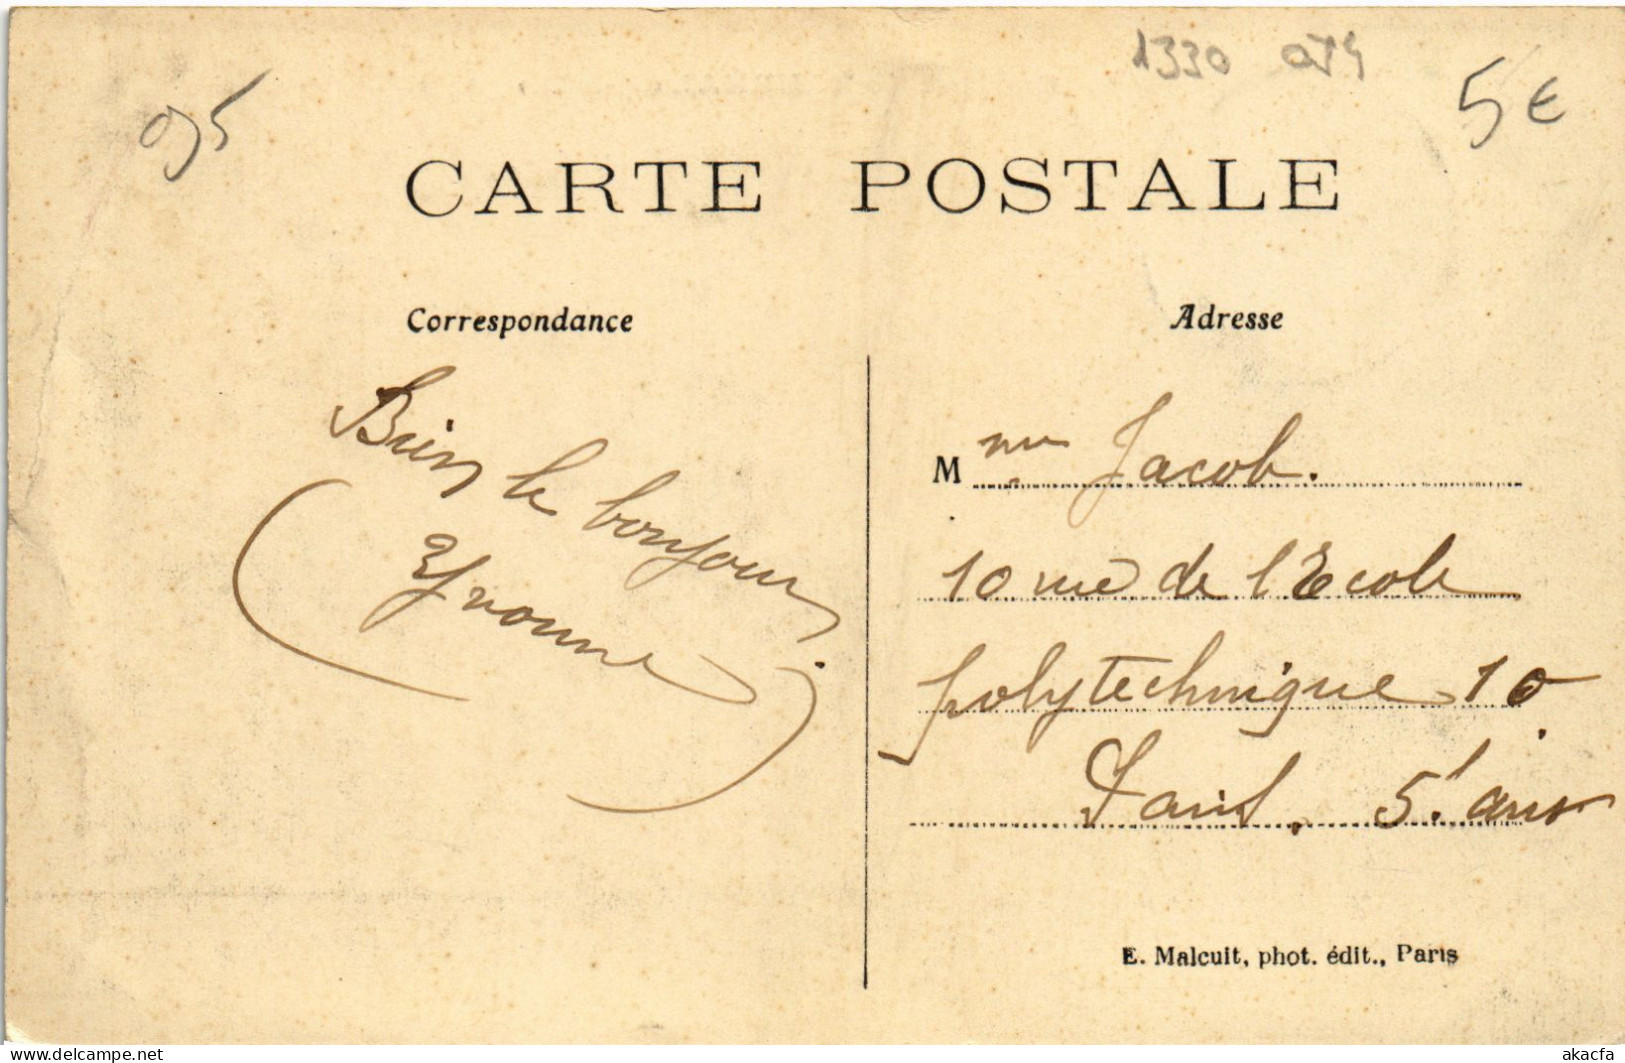 1330 074
95
5€
CARTE POSTALE
Correspondance
Adresse
Bien le bonjour
Yvonne
Mme Jacob.
10 rue de l'Ecole
polytechnique 10
Paris. 5. arr
E. Malcuit, phot. édit., Paris
www.delcampe.net
akacfa